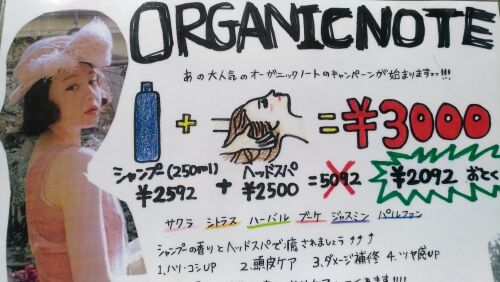 ORGANICNOTE
あの大人気のオーガニックノートのキャンペーンが始まりますっっ!!!
+ = ¥3000
シャンプー(250ml) ヘッドスパ
¥2592 + ¥2500 = 5092 ¥2092 おとく
サクラ シトラス ハーバル ブーケ ジャスミン パルファン
シャンプーの香りとヘッドスパで癒されましょう↑↑↑
1.ハリ・コシUP 2.頭皮ケア 3.ダメージ補修 4.ツヤ感UP